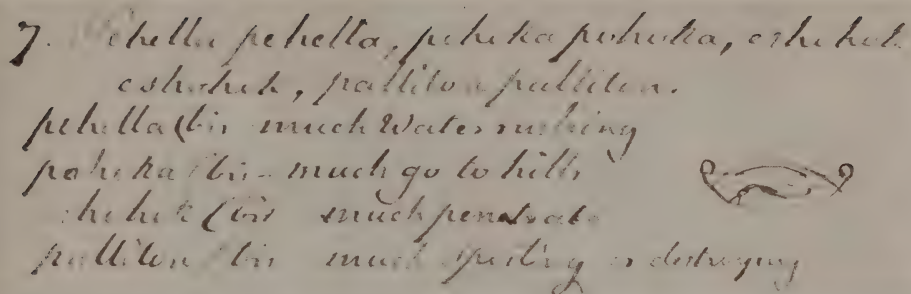 7. Pehella pehella, pohoka pohoka, eshohok
eshohok, palliton palliton.
pehella (bis much Water rushing
pohoka (bis much go to hills
(bis much penetrate
palliton (bis much spoiling or destroying